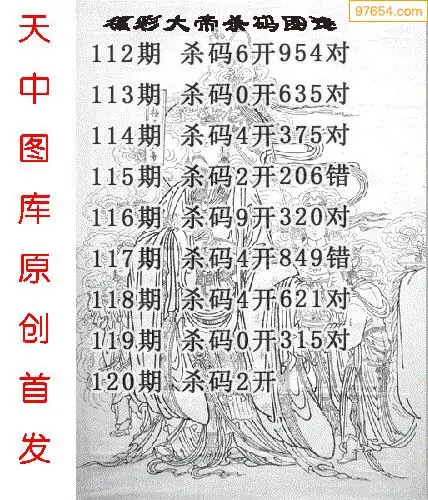 97654.com
福彩大帝杀码图迷
天中图库原创首发
112期 杀码6开954对
113期 杀码0开635对
114期 杀码4开375对
115期 杀码2开206错
116期 杀码9开320对
117期 杀码4开849错
118期 杀码4开621对
119期 杀码0开315对
120期 杀码2开